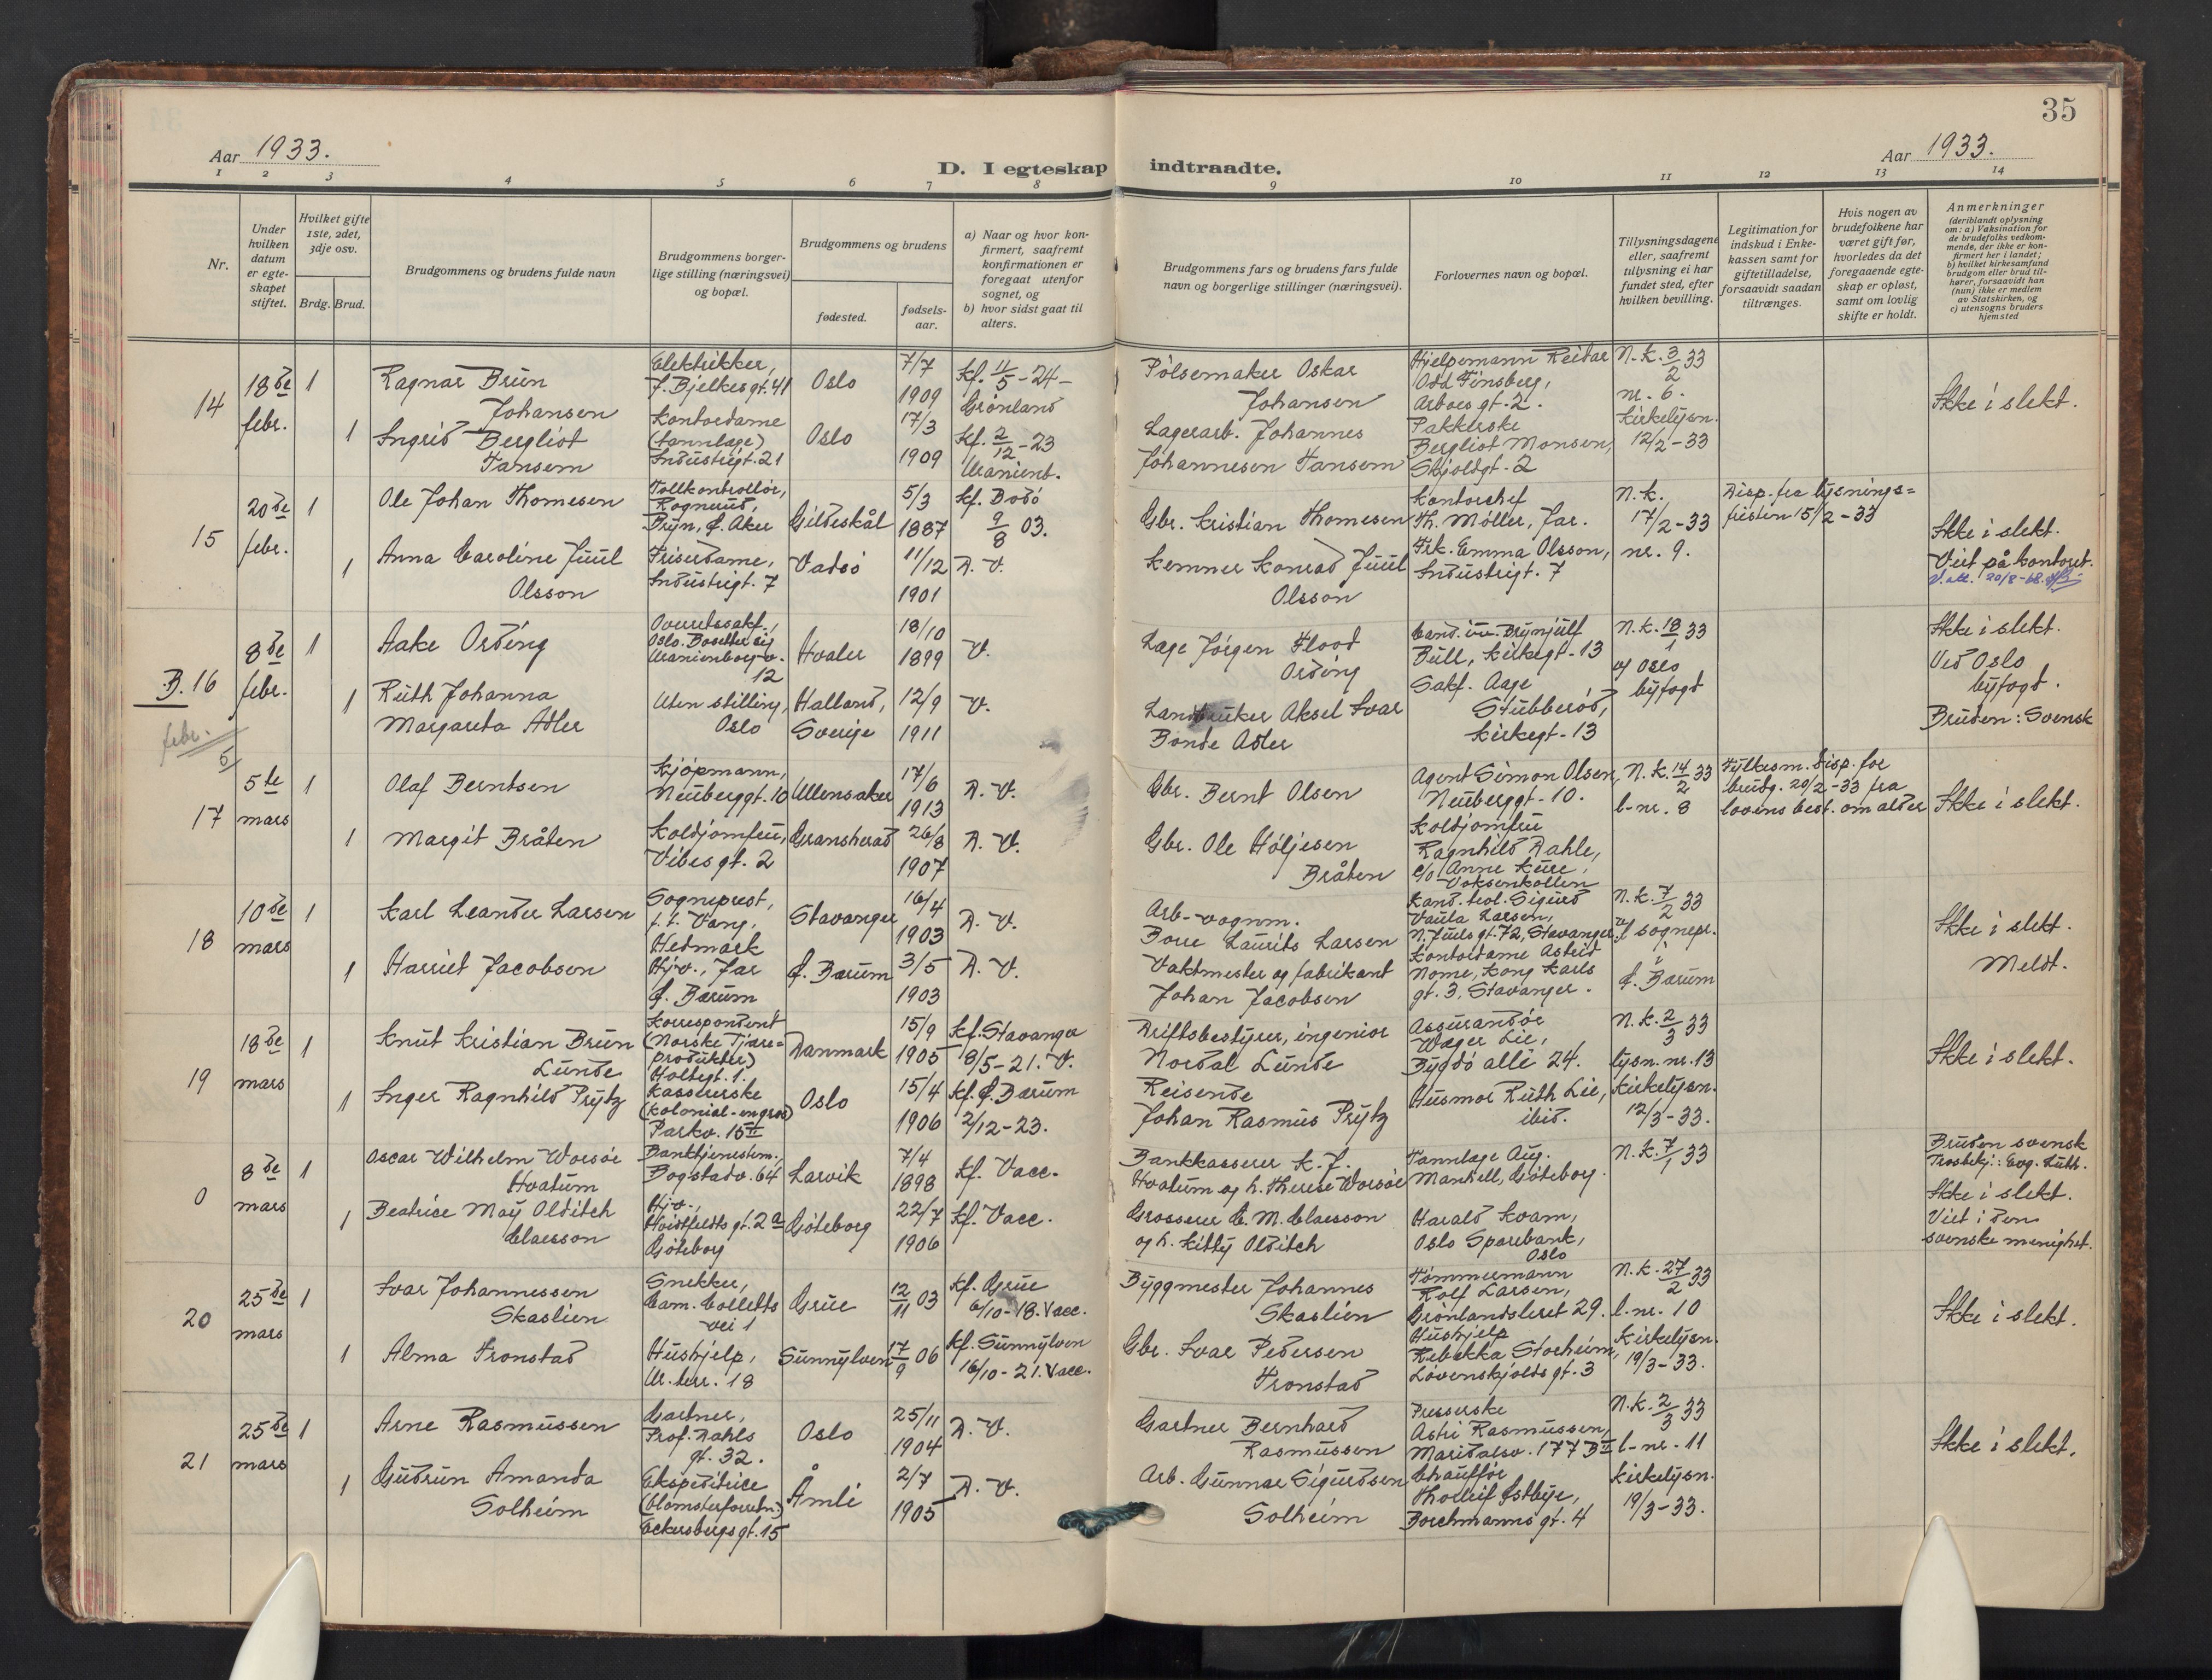 35
Aar 1933.
D. I egteskap indtraadte.
Aar 1933.
1 2 3 4 5 6 7 8 9 10 11 12 13 14
Nr.
Under hvilken datum er egteskapet stiftet.
Hvilket gifte 1ste, 2det, 3dje osv.
Brdg. Brud.
Brudgommens og brudens fulde navn
Brudgommens borgerlige stilling (næringsvei) og bopæl.
Brudgommens og brudens
fødested.
fødselsaar.
a) Naar og hvor konfirmert, saafremt konfirmationen er foregaat utenfor sognet, og
b) hvor sidst gaat til alters.
Brudgommens fars og brudens fars fulde navn og borgerlige stillinger (næringsvei).
Forlovernes navn og bopæl.
Tillysningsdagene eller, saafremt tillysning ei har fundet sted, efter hvilken bevilling.
Legitimation for indskud i Enkekassen samt for giftetilladelse, forsaavidt saadan tiltrænges.
Hvis nogen av brudefolkene har været gift før, hvorledes da det foregaaende egteskap er opløst, samt om lovlig skifte er holdt.
Anmerkninger
(deriblandt oplysning om: a) Vaksination for de brudefolks vedkommende, der ikke er konfirmert her i landet;
b) hvilket kirkesamfund brudgom eller brud tilhører, forsaavidt han (nun) ikke er medlem av Statskirken, og
c) utensogns bruders hjemsted
14
18de febr.
1
Ragnar Brun Johansen
Elektrikker, J. Bjelkesgt. 41
Oslo
7/7 1909
kf. 11/5-24- Grønland
Pølsemaker Oskar Johansen
Hjelpemann Reidar Odd Tønsberg, Arboes gt. 2.
N.k. 3/2 33
nr. 6.
1
Ingrid Bergliot Tansem
Kontordame (tannlæge) Industrigt. 21
Oslo
17/3 1909
kf. 2/12-23 Uranienb.
Lagerarb. Johannes Johannesen Tansem
Pakkerske Bergliot Monsen, Skjoldgt. 2
Kirkelysn. 12/2-33
Ikke i slekt.
15
20de febr.
1
Ole Johan Thomesen
Tollkontrollør, Rognund, Bryn, Ø. Aker
Gildeskål
5/3 1887
kf. Bodø 9/8 03.
Gbr. Kristian Thomesen
Kontorchef Th. Møller, Jar.
N.k. 17/2-33
nr. 9.
Disp. fra lysnings=
fristen 15/2-33
1
Anna Caroline Juul Olsson
Friserdame, Industrigt. 7
Vadsø
11/12 1901
D. V.
Kemner Konrad Juul Olsson
Frk. Emma Olsson, Industrigt. 7
Ikke i slekt.
Viet på kontoret.
V.att. 20/8-68.
B. 16
febr. 5/
8de febr.
1
Aake Ording
Overretssakf., Oslo. Bosetter sig Uranienborg v. 12
Hvaler
18/10 1899
V.
Lege Jørgen Flood Ording
Cand. jur. Brynjulf Bull, Kirkegt. 13
N.k. 18/1 33
v/ Oslo byfogd
1
Ruth Johanna Margareta Adler
Uten stilling, Oslo
Halland, Sverige
12/9 1911
V.
Landbruker Aksel Ivar Bonde Adler
Sakf. Aage Stubberød, Kirkegt. 13
Ikke i slekt.
Ved Oslo byfogd.
Bruden: Svensk
17
5te mars
1
Olaf Berntsen
Kjøpmann, Neuberggt. 10
Ullensaker
17/6 1913
D. V.
Gbr. Bernt Olsen
Agent Simon Olsen, Neuberggt. 10.
N.k. 14/2 33
l-nr. 8
Fylkesm. disp. for brudg. 20/2-33 fra lovens best. om alder
1
Margit Bråten
Koldjomfru, Vibesgt. 2
Gransherad
26/8 1907
D. V.
Gbr. Ole Høljesen Bråten
Koldjomfru Ragnhild Dahle, c/o Anne Kure, Voksenkollen
Ikke i slekt.
18
10de mars
1
Karl Leander Larsen
Sogneprest, f.t. Vang, Hedmark
Stavanger
16/4 1903
D. V.
Arb.-vognm. Borre Laurits Larsen
Kand. teol. Sigurd Vaula Larsen, N. Juels gt. 72, Stavanger.
N.k. 7/2 33
v/ sognepr. i Ø. Bærum
1
Harriet Jacobsen
Hjv., Jar Ø. Bærum
Ø. Bærum
3/5 1903
D. V.
Vaktmester og fabrikant Johan Jacobsen
Kontordame Astrid Nome, Kong Karls gt. 3, Stavanger.
Ikke i slekt.
Meldt.
19
18de mars
1
Knut Kristian Brun Lunde
Korrespondent (Norske Tjære= produkter) Holtegt. 1.
Danmark
15/9 1905
kf. Stavanger 8/5-21. V.
Driftsbestyrer, ingeniør Nordal Lunde
Assurandør Wæger Lie, Bygdø allé 24.
N.k. 2/3 33
lysn. nr. 13
1
Inger Ragnhild Prytz
Kassererske (kolonial-engros) Parkv. 15 II
Oslo
15/4 1906
kf. Ø. Bærum 2/12-23.
Reisende Johan Rasmus Prytz
Husmor Ruth Lie, ibid.
Kirkelysn. 12/3-33.
Ikke i slekt.
0
8de mars
1
Oscar Wilhelm Worsøe Hvatum
Banktjenestem., Bogstadv. 64
Larvik
7/4 1898
kf. Vacc.
Bankkasserer K. J. Hvatum og h. Therese Worsøe
Tannlæge Aug. Manhell, Gøteborg.
N.k. 7/1 33
1
Beatrice May Olditch Claesson
Hjv., Hvidtfeldts gt. 2a Gøteborg
Gøteborg
22/7 1906
kf. Vacc.
Grosserer C. M. Claesson og h. Kitty Olditch
Harald Kvam, Oslo Sparebank, Oslo
Bruden svensk
Trosbekj.: Evg. Luth.
Ikke i slekt.
Viet i den svenske menighet.
20
25de mars
1
Ivar Johannessen Skaslien
Snekker, Cam. Colletts vei 1
Grue
12/11 03
kf. Grue 6/10-18. Vacc.
Byggmester Johannes Skaslien
Tømmermann Rolf Larsen, Grønlandsleret 29.
N.k. 27/2 33
l.-nr. 10
1
Alma Tronstad
Hushjelp, Ul. terr. 18
Sunnylven
17/9 06
kf. Sunnylven 16/10-21. Vacc.
Gbr. Ivar Pedersen Tronstad
Hushjelp Rebekka Storheim, Løvenskjolds gt. 3
Kirkelysn. 19/3-33.
Ikke i slekt.
21
25de mars
1
Arne Rasmussen
Gartner, Prof. Dahls gt. 32.
Oslo
25/11 1904
D. V.
Gartner Bernhard Rasmussen
Presserske Astri Rasmussen, Maridalsv. 177 B II
N.k. 2/3 33
l-nr. 11
1
Gudrun Amanda Solheim
Ekspeditrice (blomsterforretn.) Eckersbergs gt. 15
Åmli
2/7 1905
D. V.
Arb. Gunnar Sigurdsen Solheim
Chauffør Thorleif Østbye, Borchmanns gt. 4
Kirkelysn. 19/3-33.
Ikke i slekt.